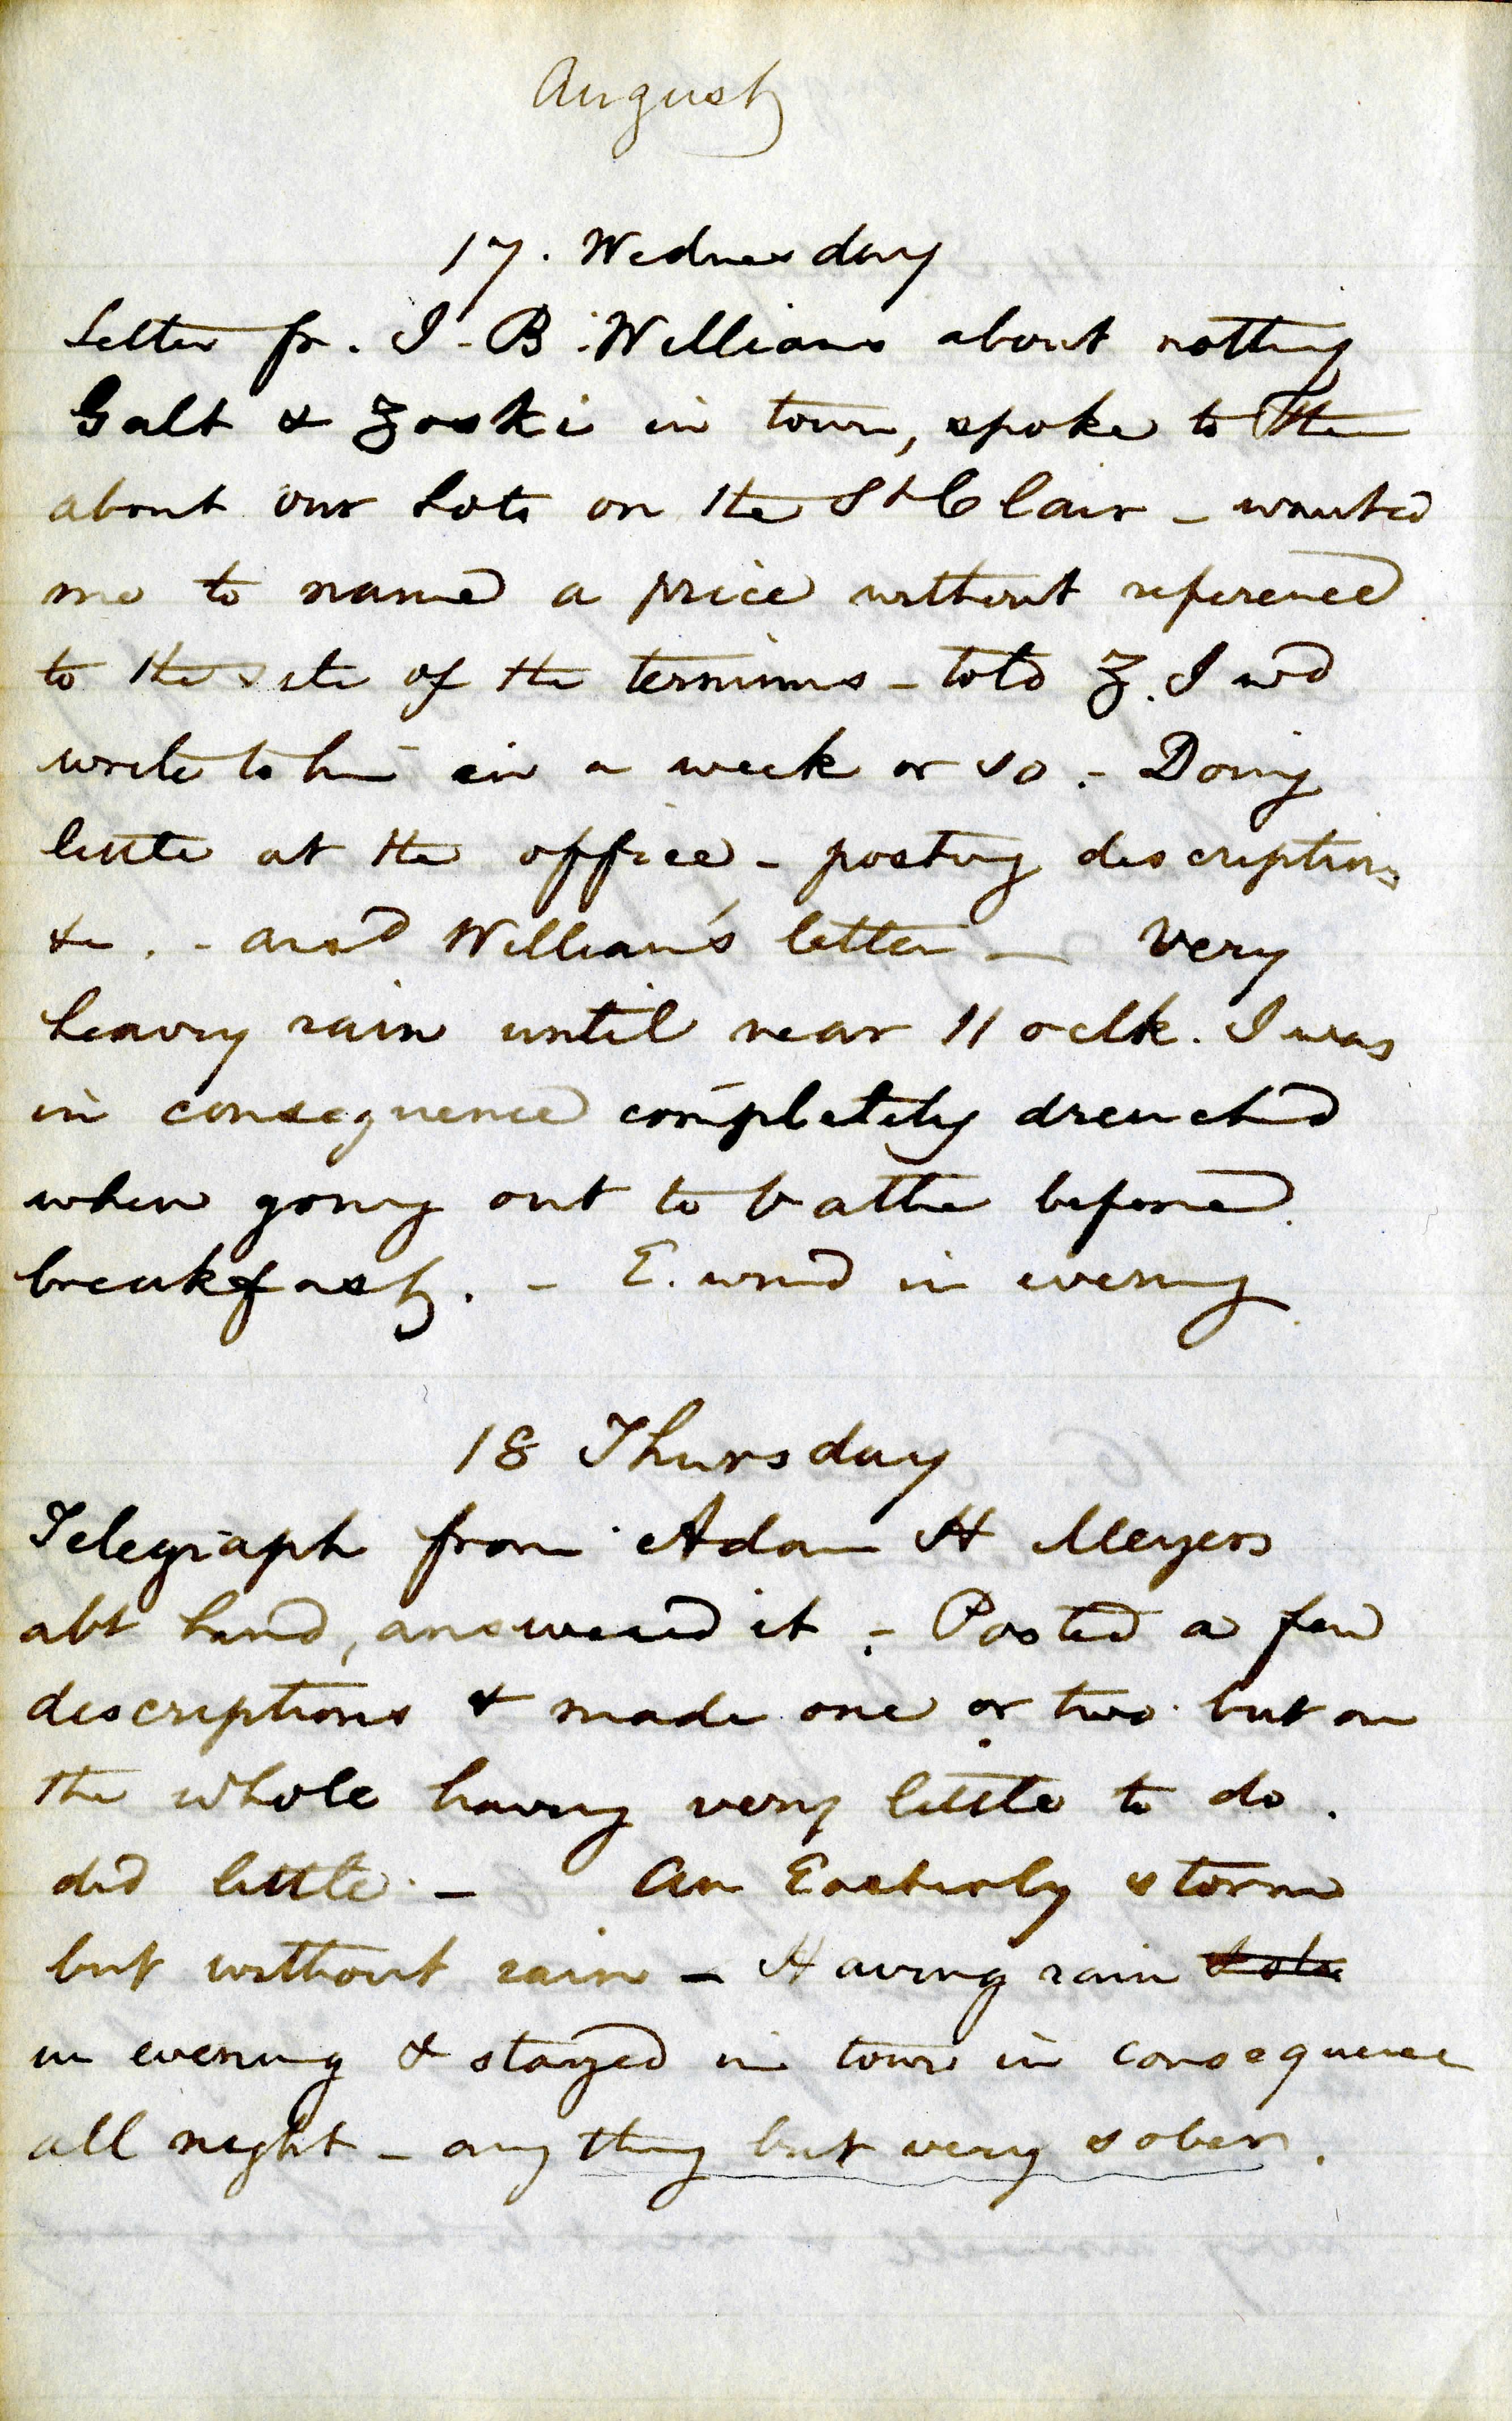 August
17. Wednesday
Letter fr. J. B. Williams about nothing
Galt & Zoski in town, spoke to them
about our Lots on the St Clair - wanted
me to name a price without reference
to the site of the terminus - told Z. I wd
write to him in a week or so. - Doing
little at the office - posting descriptions
&c. - ansd William's letter - Very
heavy rain until near 11 oclk. I was
in consequence completely drenched
when going out to bathe before
breakfast. - E. wind in evening
18 Thursday
Telegraph from Adam H Meyers
abt Land, answered it. - Posted a few
descriptions & made one or two but on
the whole having very little to do.
did little. - An Easterly storm
but without rain - Having rain
in evening & stayed in town in consequence
all night - any thing but very sober.